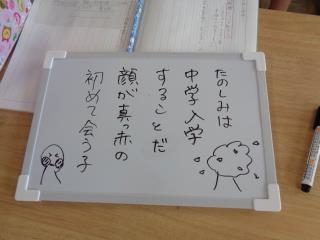 たのしみは
中学入学
することだ
顔が真っ赤の
初めて会う子